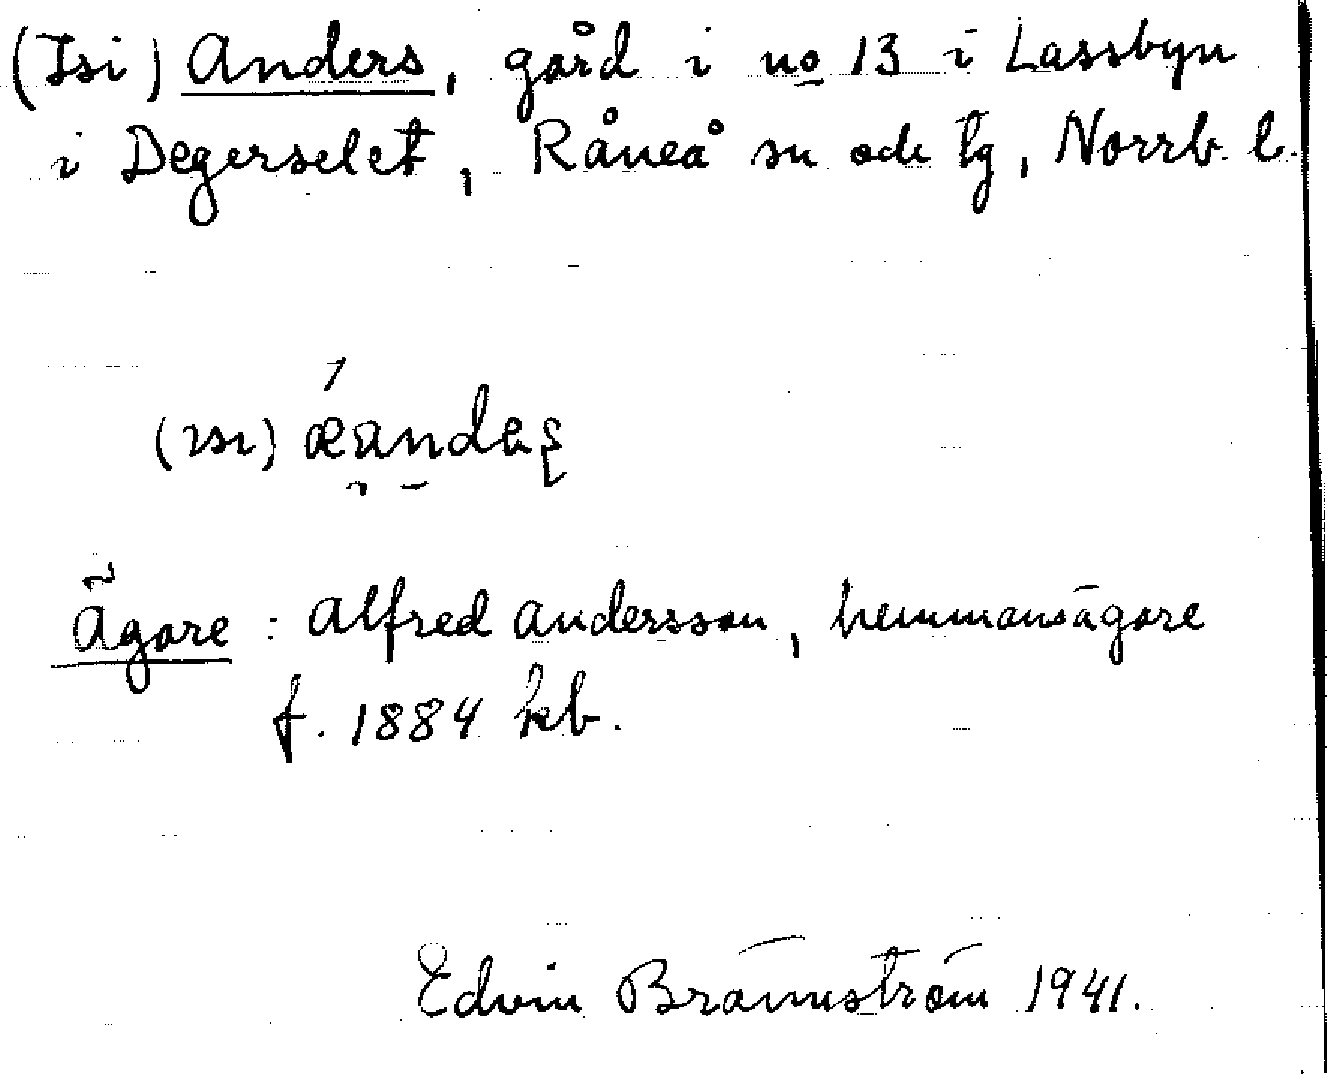 (Isi) Anders, gård i no 13 i Lassbyn
i Degerselet, Råneå sn och tg, Norrb. l.
(ɪsɪ) ǽandaʂ
Ägare : Alfred Andersson, hemmansägare
f. 1884 kb.
Edvin Brännström 1941.